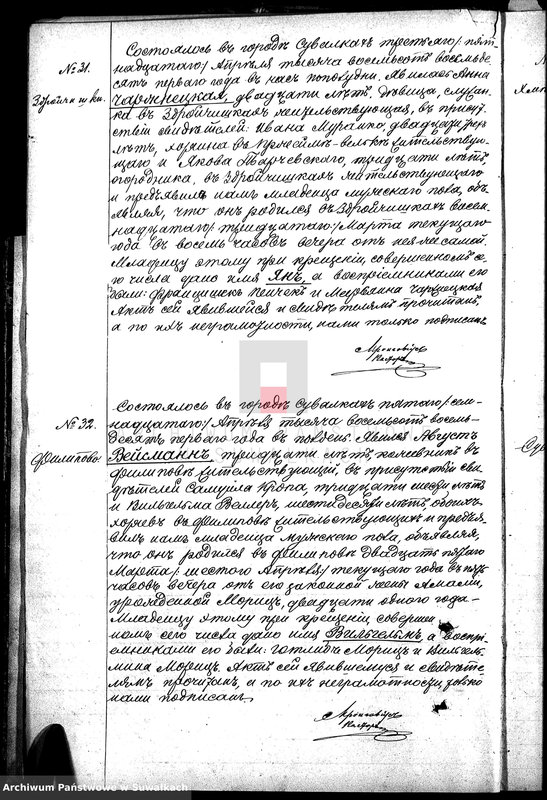 № 31.
Состоялось въ городѣ Сувалкахъ третьяго/пят-
надцатаго/Апрѣля тысяча восемьсотъ восемьде-
сятъ перваго года въ часъ пополудни. Явилась Анна
двадцати лѣтъ, дѣвица, служан-
ка въ Збройчишкахъ жительствующая, въ присут-
ствіи свидѣтелей: Ивана двадцати трехъ
лѣтъ, въ жительствую-
щаго и Якова тридцати лѣтъ
огородника, въ Збройчишкахъ жительствующаго
и предъявила намъ младенца мужескаго пола, объ-
являя, что онъ родился въ Збройчишкахъ восем-
надцатаго/тридцатаго/Марта текущаго
года въ восемь часовъ вечера отъ нея же самой.
Младенцу этому при крещеніи совершенномъ се-
го числа дано имя Янъ, а воспріемниками его
были: Францишекъ и Маріанна
Актъ сей явившейся и свидѣтелямъ прочитанъ,
а по ихъ неграмотности, нами только подписанъ
№ 32.
Филипово.
Состоялось въ городѣ Сувалкахъ пятаго/сем-
надцатаго/Апрѣля тысяча восемьсотъ восемь-
десятъ перваго года въ полдень. Явился Августъ
Вейсманнъ, тридцати лѣтъ, въ
Филиповѣ жительствующій, въ присутствіи сви-
дѣтелей Самуила Кропа, тридцати шести лѣтъ
и Вильгельма Веллеръ, шестидесяти лѣтъ, обоихъ
въ Филиповѣ жительствующихъ и предъя-
вилъ намъ младенца мужескаго пола, объявляя,
что онъ родился въ Филиповѣ двадцать пятаго
Марта/шестого Апрѣля/текущаго года въ пять
часовъ вечера отъ его законной жены Амаліи,
урожденной Морицъ, двадцати одного года.
Младенцу этому при крещеніи соверш
номъ сего числа дано имя Вильгельмъ, а воспрі-
емниками его были: Готлибъ Морицъ и Вильгель-
мина Морицъ. Актъ сей явившемуся и свидѣте-
лямъ прочитанъ, и по ихъ неграмотности, только
нами подписанъ.
Archiwum Państwowe w Suwałkach